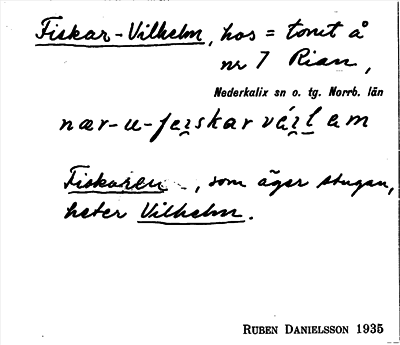 Fiskar-Vilhelm, hos = tomt å
nr 7 Rian,
Nederkalix sn o. tg. Norrb. län
nær-u-feskar vá l em
Fiskaren, som äger stugan,
heter Vilhelm.
RUBEN DANIELSSON 1935